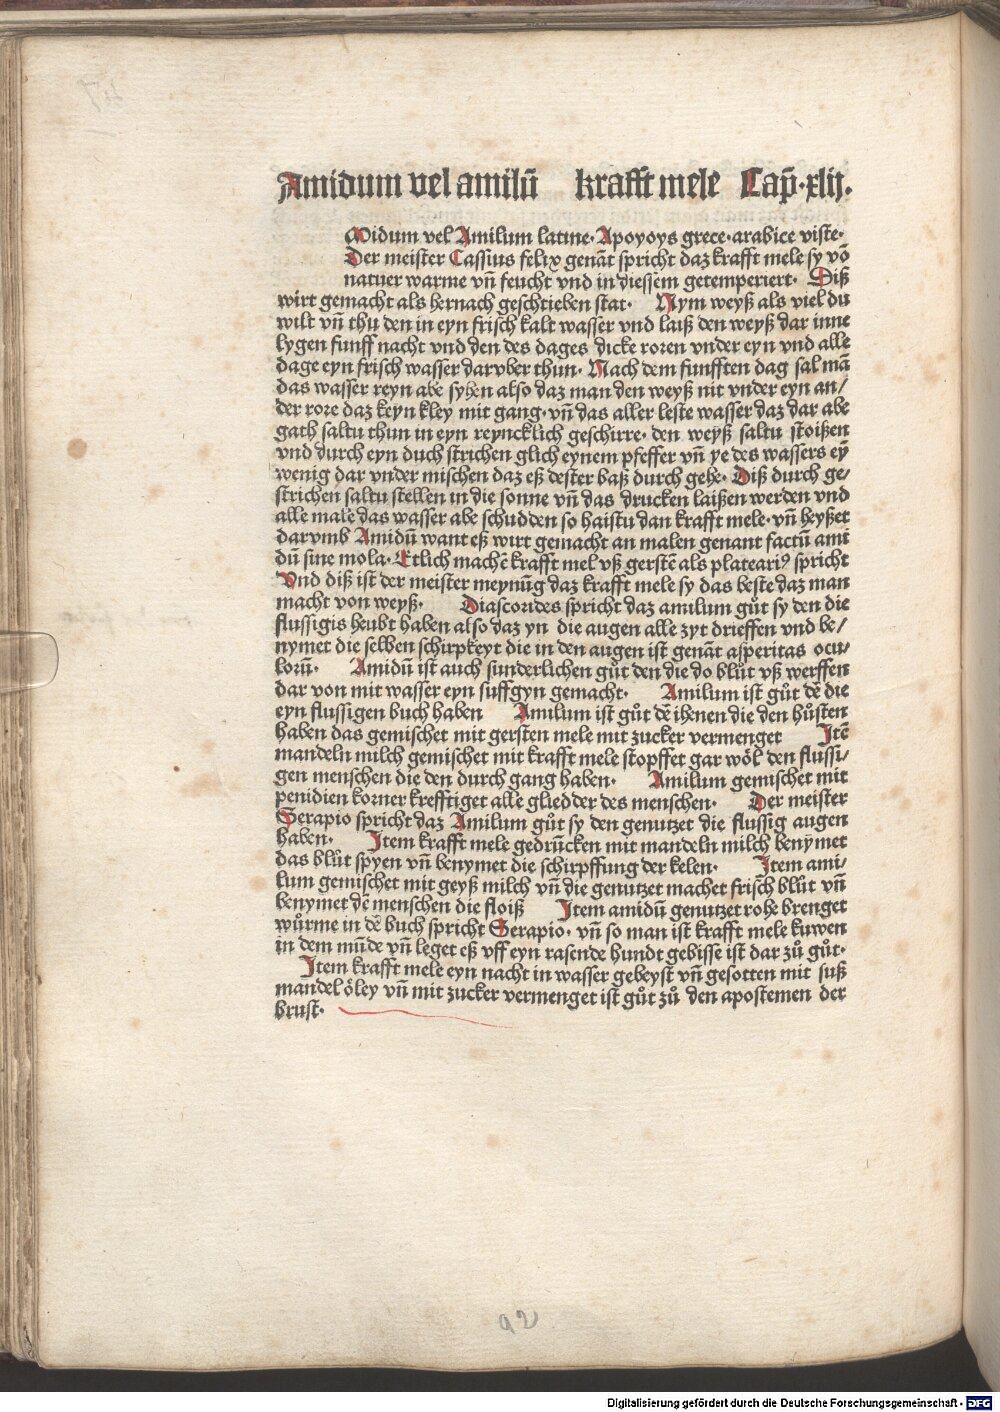 Amidum vel amilū krafft mele Cap̄·xlij.
Midum vel Amilum latine· Apoyoys grece· arabice viste·
Der meister Cassius felix genāt spricht daz krafft mele sy vō
natuer warme vn̄ feucht vnd in diessem getemperiert· Diß
wirt gemacht als hernach geschtieben stat· Nym weyß als viel du
wilt vn̄ thu den in eyn frisch kalt wasser vnd laiß den weyß dar inne
lygen funff nacht vnd den des dages dicke roren vnder eyn vnd alle
dage eyn frisch wasser daruber thun· Nach dem funfften dag sal mā
das wasser reyn abe syhen also daz man den weyß nit vnder eyn an/
der rore daz keyn kley mit gang· vn̄ das aller leste wasser daz dar abe
gath saltu thun in eyn reyncklich geschirre· den weyß saltu stoißen
vnd durch eyn duch strichen glich eynem pfeffer vn̄ ye des wassers eȳ
wenig dar vnder mischen daz eß dester baß durch gehe· Diß durch ge/
strichen saltu stellen in die sonne vn̄ das drucken laißen werden vnd
alle male das wasser abe schudden so haistu dan krafft mele· vn̄ heyßet
darvmb Amidū want eß wirt gemacht an malen genant factū ami
dū sine mola· Etlich machē krafft mel vß gerstē als plateariꝰ spricht
Vnd diß ist der meister meynūg daz krafft mele sy das beste daz man
macht von weyß· Diascorides spricht daz amilum gůt sy den die
flussigis heubt haben also daz yn die augen alle zyt drieffen vnd be/
nymet die selben schirpkeyt die in den augen ist genāt asperitas ocu
lorū· Amidū ist auch sunderlichen gůt den die do blůt vß werffen
dar von mit wasser eyn suffgyn gemacht· Amilum ist gůt dē die
eyn flussigen buch haben Amilum ist gůt dē ihenen die den hůsten
haben das gemischet mit gersten mele mit zucker vermenget Itē
mandeln milch gemischet mit krafft mele stopffet gar wol den flussi/
gen menschen die den durch gang haben· Amilum gemischet mit
penidien korner krefftiget alle gliedder des menschen· Der meister
Serapio spricht daz Amilum gůt sy den genutzet die flussig augen
haben· Item krafft mele gedrūcken mit mandeln milch benymet
das blůt spyen vn̄ benymet die schirpffung der kelen· Item ami/
lum gemischet mit geyß milch vn̄ die genutzet machet frisch blůt vn̄
benymet dē menschen die floiß Item amidū genutzet rohe brenget
wůrme in dē buch spricht Serapio· vn̄ so man ist krafft mele kuwen
in dem mūde vn̄ leget eß vff eyn rasende hundt gebisse ist dar zů gůt·
Item krafft mele eyn nacht in wasser gebeyst vn̄ gesotten mit suß
mandel öley vn̄ mit zucker vermenget ist gůt zů den apostemen der
brust·
92
Digitalisierung gefördert durch die Deutsche Forschungsgemeinschaft - DFG